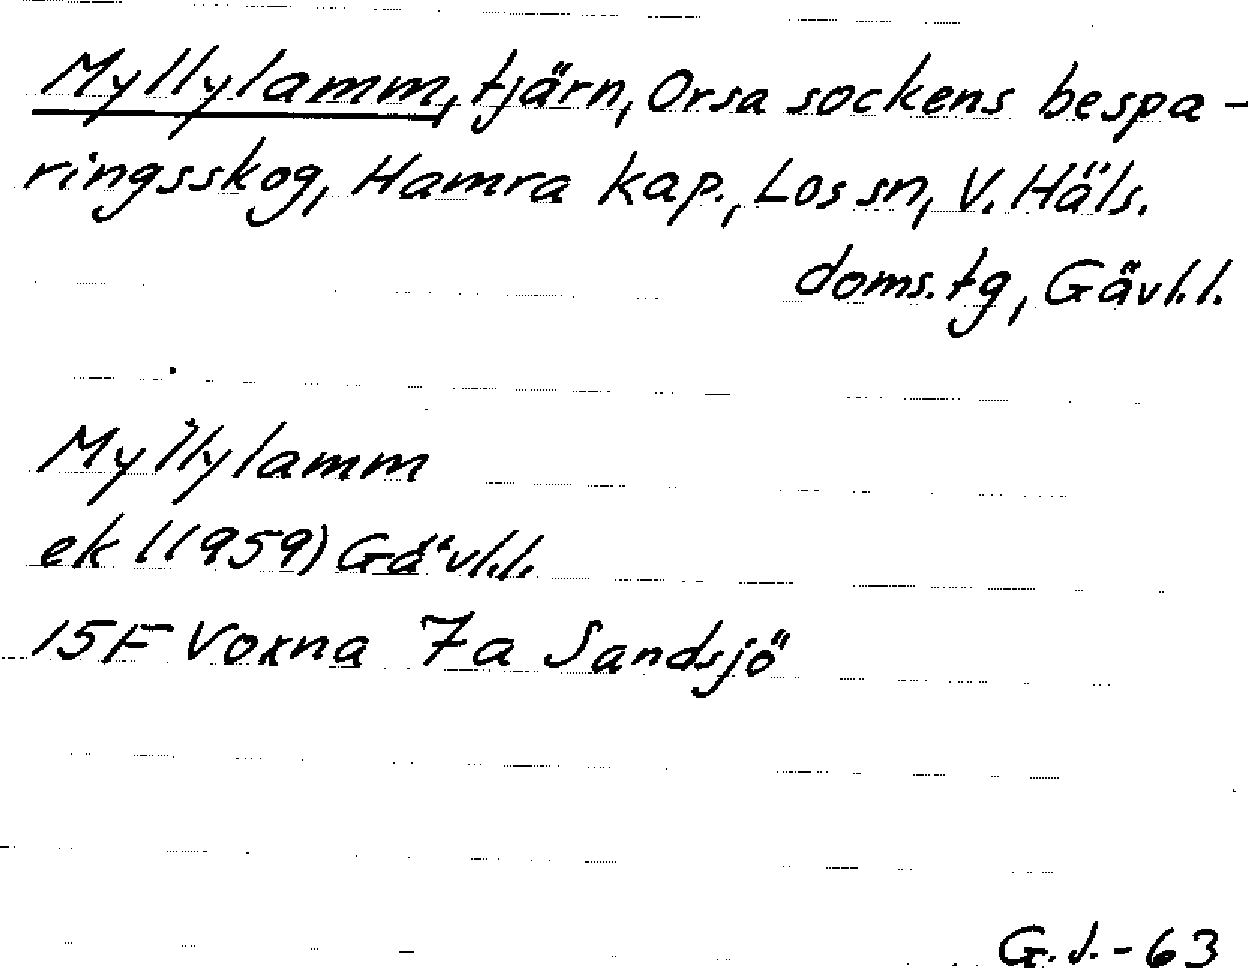 Myllylamm, tjärn, Orsa sockens bespa-
ringsskog, Hamra kap., Los sn, V. Häls.
doms.tg, Gävl.l.
Myllylamm
ek l(1959) Gävl.l.
15F Voxna 7a Sandsjö
G.J.-63